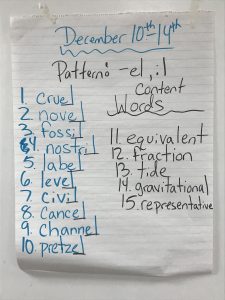 December 10th-14th
Pattern: -el, il
1. cruel
2. novel
3. fossil
4. nostril
5. label
6. level
7. civil
8. cancel
9. channel
10. pretzel
Content
Words
11. equivalent
12. fraction
13. tide
14. gravitational
15. representative